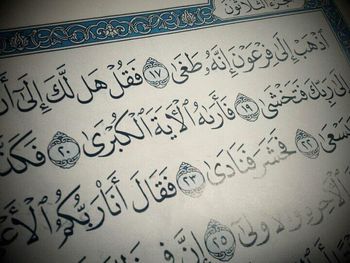 الجزء الثلاثون
ٱذْهَبْ إِلَىٰ فِرْعَوْنَ إِنَّهُۥ طَغَىٰ ١٧ فَقُلْ هَل لَّكَ إِلَىٰٓ أَن
إِلَىٰ رَبِّكَ فَتَخْشَىٰ ١٩ فَأَرَىٰهُ ٱلْءَايَةَ ٱلْكُبْرَىٰ ٢٠ فَكَذَّ
يَسْعَىٰ ٢٢ فَحَشَرَ فَنَادَىٰ ٢٣ فَقَالَ أَنَا۠ رَبُّكُمُ ٱلْأَعْ
ٱلْءَاخِرَةِ وَٱلْأُولَىٰٓ ٢٥ إِنَّ فِى